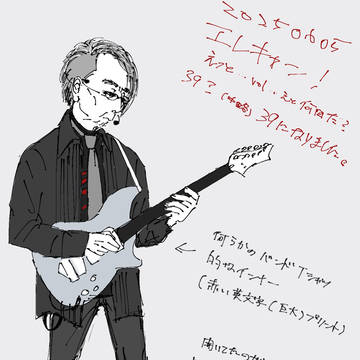 20250605
エレキャン!
えっと..vol.えと何だ?
39?(略) 39になりました。
何らかのバンドTシャツ
的なインナー
(赤い英文字(巨大)プリント)